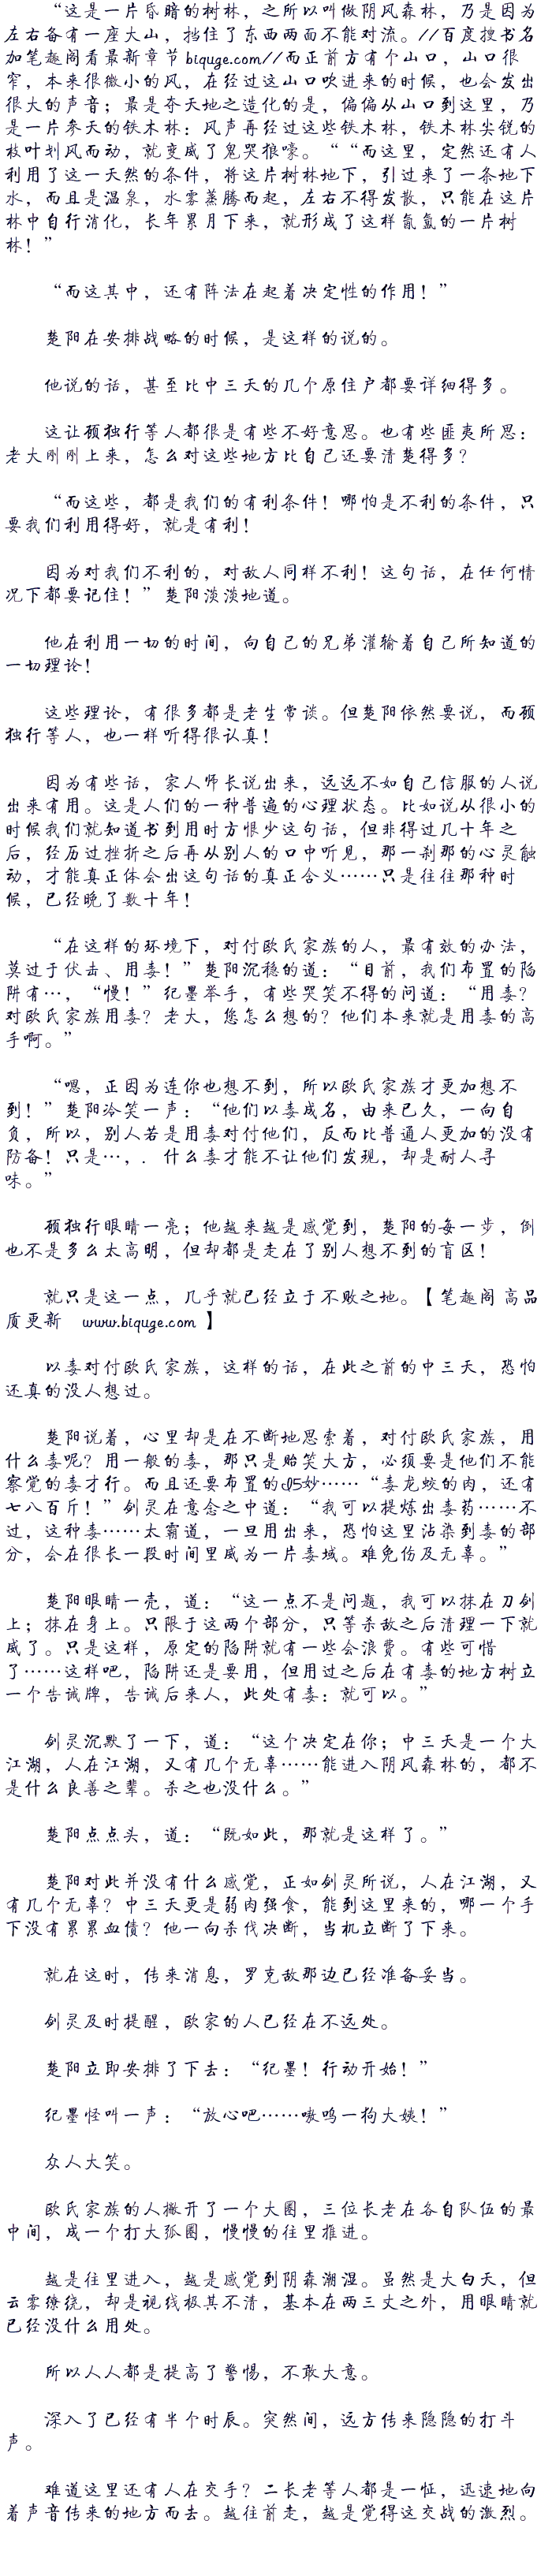 “这是一片昏暗的树林，之所以叫做阴风森林，乃是因为
左右备有一座大山，挡住了东西两面不能对流。//百度搜书名
加笔趣阁看最新章节biquge.com//而正前方有个山口，山口很
窄，本来很微小的风，在经过这山口吹进来的时候，也会发出
很大的声音；最是夺天地之造化的是，偏偏从山口到这里，乃
是一片参天的铁木林：风声再经过这些铁木林，铁木林尖锐的
枝叶划风而动，就变威了鬼哭狼嚎。““而这里，定然还有人
利用了这一天然的条件，将这片树林地下，引过来了一条地下
水，而且是温泉，水雾蒸腾而起，左右不得发散，只能在这片
林中自行消化，长年累月下来，就形成了这样氤氲的一片树
林！”
“而这其中，还有阵法在起着决定性的作用！”
楚阳在安排战略的时候，是这样的说的。
他说的话，甚至比中三天的几个原住户都要详细得多。
这让顾独行等人都很是有些不好意思。也有些匪夷所思：
老大刚刚上来，怎么对这些地方比自己还要清楚得多？
“而这些，都是我们的有利条件！哪怕是不利的条件，只
要我们利用得好，就是有利！
因为对我们不利的，对敌人同样不利！这句话，在任何情
况下都要记住！”楚阳淡淡地道。
他在利用一切的时间，向自己的兄弟灌输着自己所知道的
一切理论！
这些理论，有很多都是老生常谈。但楚阳依然要说，而顾
独行等人，也一样听得很认真！
因为有些话，家人师长说出来，远远不如自己信服的人说
出来有用。这是人们的一种普遍的心理状态。比如说从很小的
时候我们就知道书到用时方恨少这句话，但非得过几十年之
后，经历过挫折之后再从别人的口中听见，那一刹那的心灵触
动，才能真正体会出这句话的真正含义……只是往往那种时
候，已经晚了数十年！
“在这样的环境下，对付欧氏家族的人，最有效的办法，
莫过于伏击、用毒！”楚阳沉稳的道：“目前，我们布置的陷
阱有…，“慢！”纪墨举手，有些哭笑不得的问道：“用毒？
对欧氏家族用毒？老大，您怎么想的？他们本来就是用毒的高
手啊。”
“嗯，正因为连你也想不到，所以欧氏家族才更加想不
到！”楚阳冷笑一声：“他们以毒成名，由来已久，一向自
负，所以，别人若是用毒对付他们，反而比普通人更加的没有
防备！只是…，．什么毒才能不让他们发现，却是耐人寻
味。”
顾独行眼睛一亮；他越来越是感觉到，楚阳的每一步，倒
也不是多么太高明，但却都是走在了别人想不到的盲区！
就只是这一点，几乎就已经立于不败之地。【笔趣阁 高品
质更新　www.biquge.com 】
以毒对付欧氏家族，这样的话，在此之前的中三天，恐怕
还真的没人想过。
楚阳说着，心里却是在不断地思索着，对付欧氏家族，用
什么毒呢？用一般的毒，那只是贻笑大方，必须要是他们不能
察觉的毒才行。而且还要布置的I5妙……“毒龙蛟的肉，还有
七八百斤！”剑灵在意念之中道：“我可以提炼出毒药……不
过，这种毒……太霸道，一旦用出来，恐怕这里沾染到毒的部
分，会在很长一段时间里威为一片毒域。难免伤及无辜。”
楚阳眼睛一壳，道：“这一点不是问题，我可以抹在刀剑
上；抹在身上。只限于这两个部分，只等杀敌之后清理一下就
威了。只是这样，原定的陷阱就有一些会浪费。有些可惜
了……这样吧，陷阱还是要用，但用过之后在有毒的地方树立
一个告诫牌，告诫后来人，此处有毒：就可以。”
剑灵沉默了一下，道：“这个决定在你；中三天是一个大
江湖，人在江湖，又有几个无辜……能进入阴风森林的，都不
是什么良善之辈。杀之也没什么。”
楚阳点点头，道：“既如此，那就是这样了。”
楚阳对此并没有什么感觉，正如剑灵所说，人在江湖，又
有几个无辜？中三天更是弱肉强食，能到这里来的，哪一个手
下没有累累血债？他一向杀伐决断，当机立断了下来。
就在这时，传来消息，罗克敌那边已经准备妥当。
剑灵及时提醒，欧家的人已经在不远处。
楚阳立即安排了下去：“纪墨！行动开始！”
纪墨怪叫一声：“放心吧……嗷呜一拘大姨！”
众人大笑。
欧氏家族的人撇开了一个大圈，三位长老在各自队伍的最
中间，成一个打大弧圈，慢慢的往里推进。
越是往里进入，越是感觉到阴森潮湿。虽然是大白天，但
云雾缭绕，却是视线极其不清，基本在两三丈之外，用眼睛就
已经没什么用处。
所以人人都是提高了警惕，不敢大意。
深入了已经有半个时辰。突然间，远方传来隐隐的打斗
声。
难道这里还有人在交手？二长老等人都是一怔，迅速地向
着声音传来的地方而去。越往前走，越是觉得这交战的激烈。